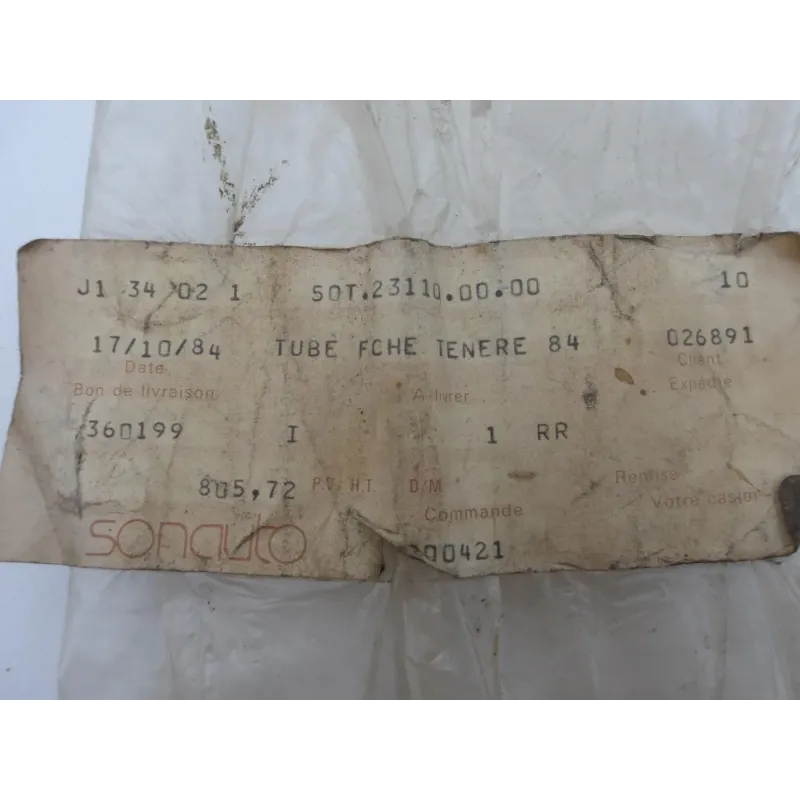 J1 34 02 1 50T.23110.00.00 10
17/10/84 TUBE FCHE TENERE 84 026891
Date Client
Bon de livraison A livrer Expédié
360199 I 1 RR
805,72 P.V. H.T. D/M Remise
Commande Votre casier
sonauto 000421